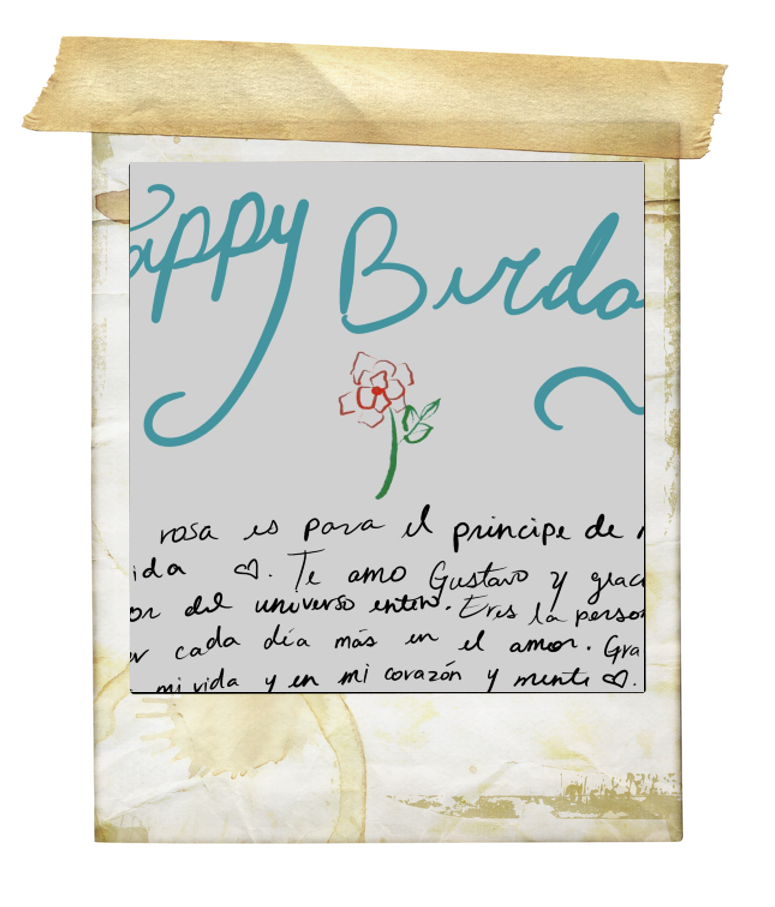 appy Birda
rosa es para el principe de
ida ♡. Te amo Gustavo y grac
or del universo entero. Eres la perso
cada día más en el amor. Gra
mi vida y en mi corazón y mente ♡.